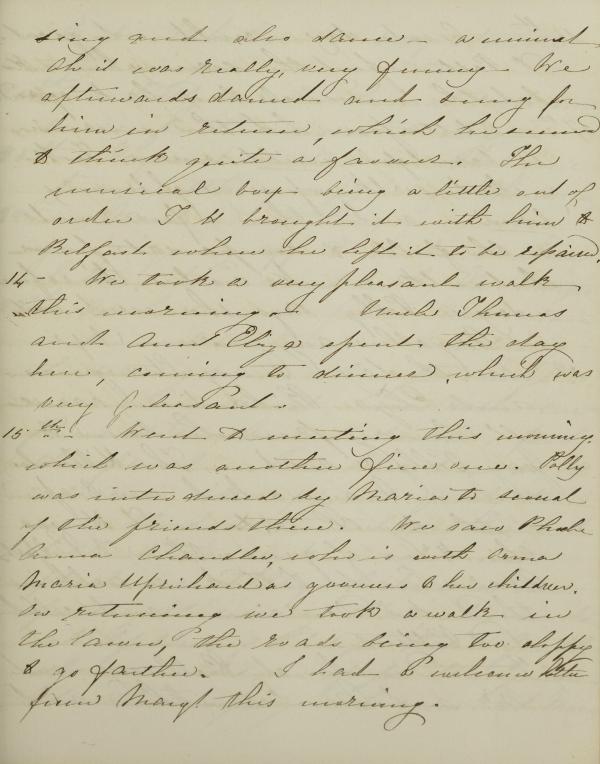 sing and also dance - a minuet
Oh it was really, very funny - We
afterwards danced and sung for
him in return, which he seemed
to think quite a favour. The
musical box being a little out of
order T H brought it with him to
Belfast where he left it to be repaired.
14 - We took a very pleasant walk
this morning - Uncle Thomas
and Aunt Eliza spent the day
here, coming to dinner, which was
very pleasant.
15th - Went to meeting this morning
which was another fine one. Polly
was introduced by Maria to several
of the friends there. We saw Phebe
Anna Chandler, who is with Anna
Maria Uprichard as governess to her children.
On returning we took a walk in
the lawn, the roads being too sloppy
to go farther. I had a welcome letter
from Margt this morning.